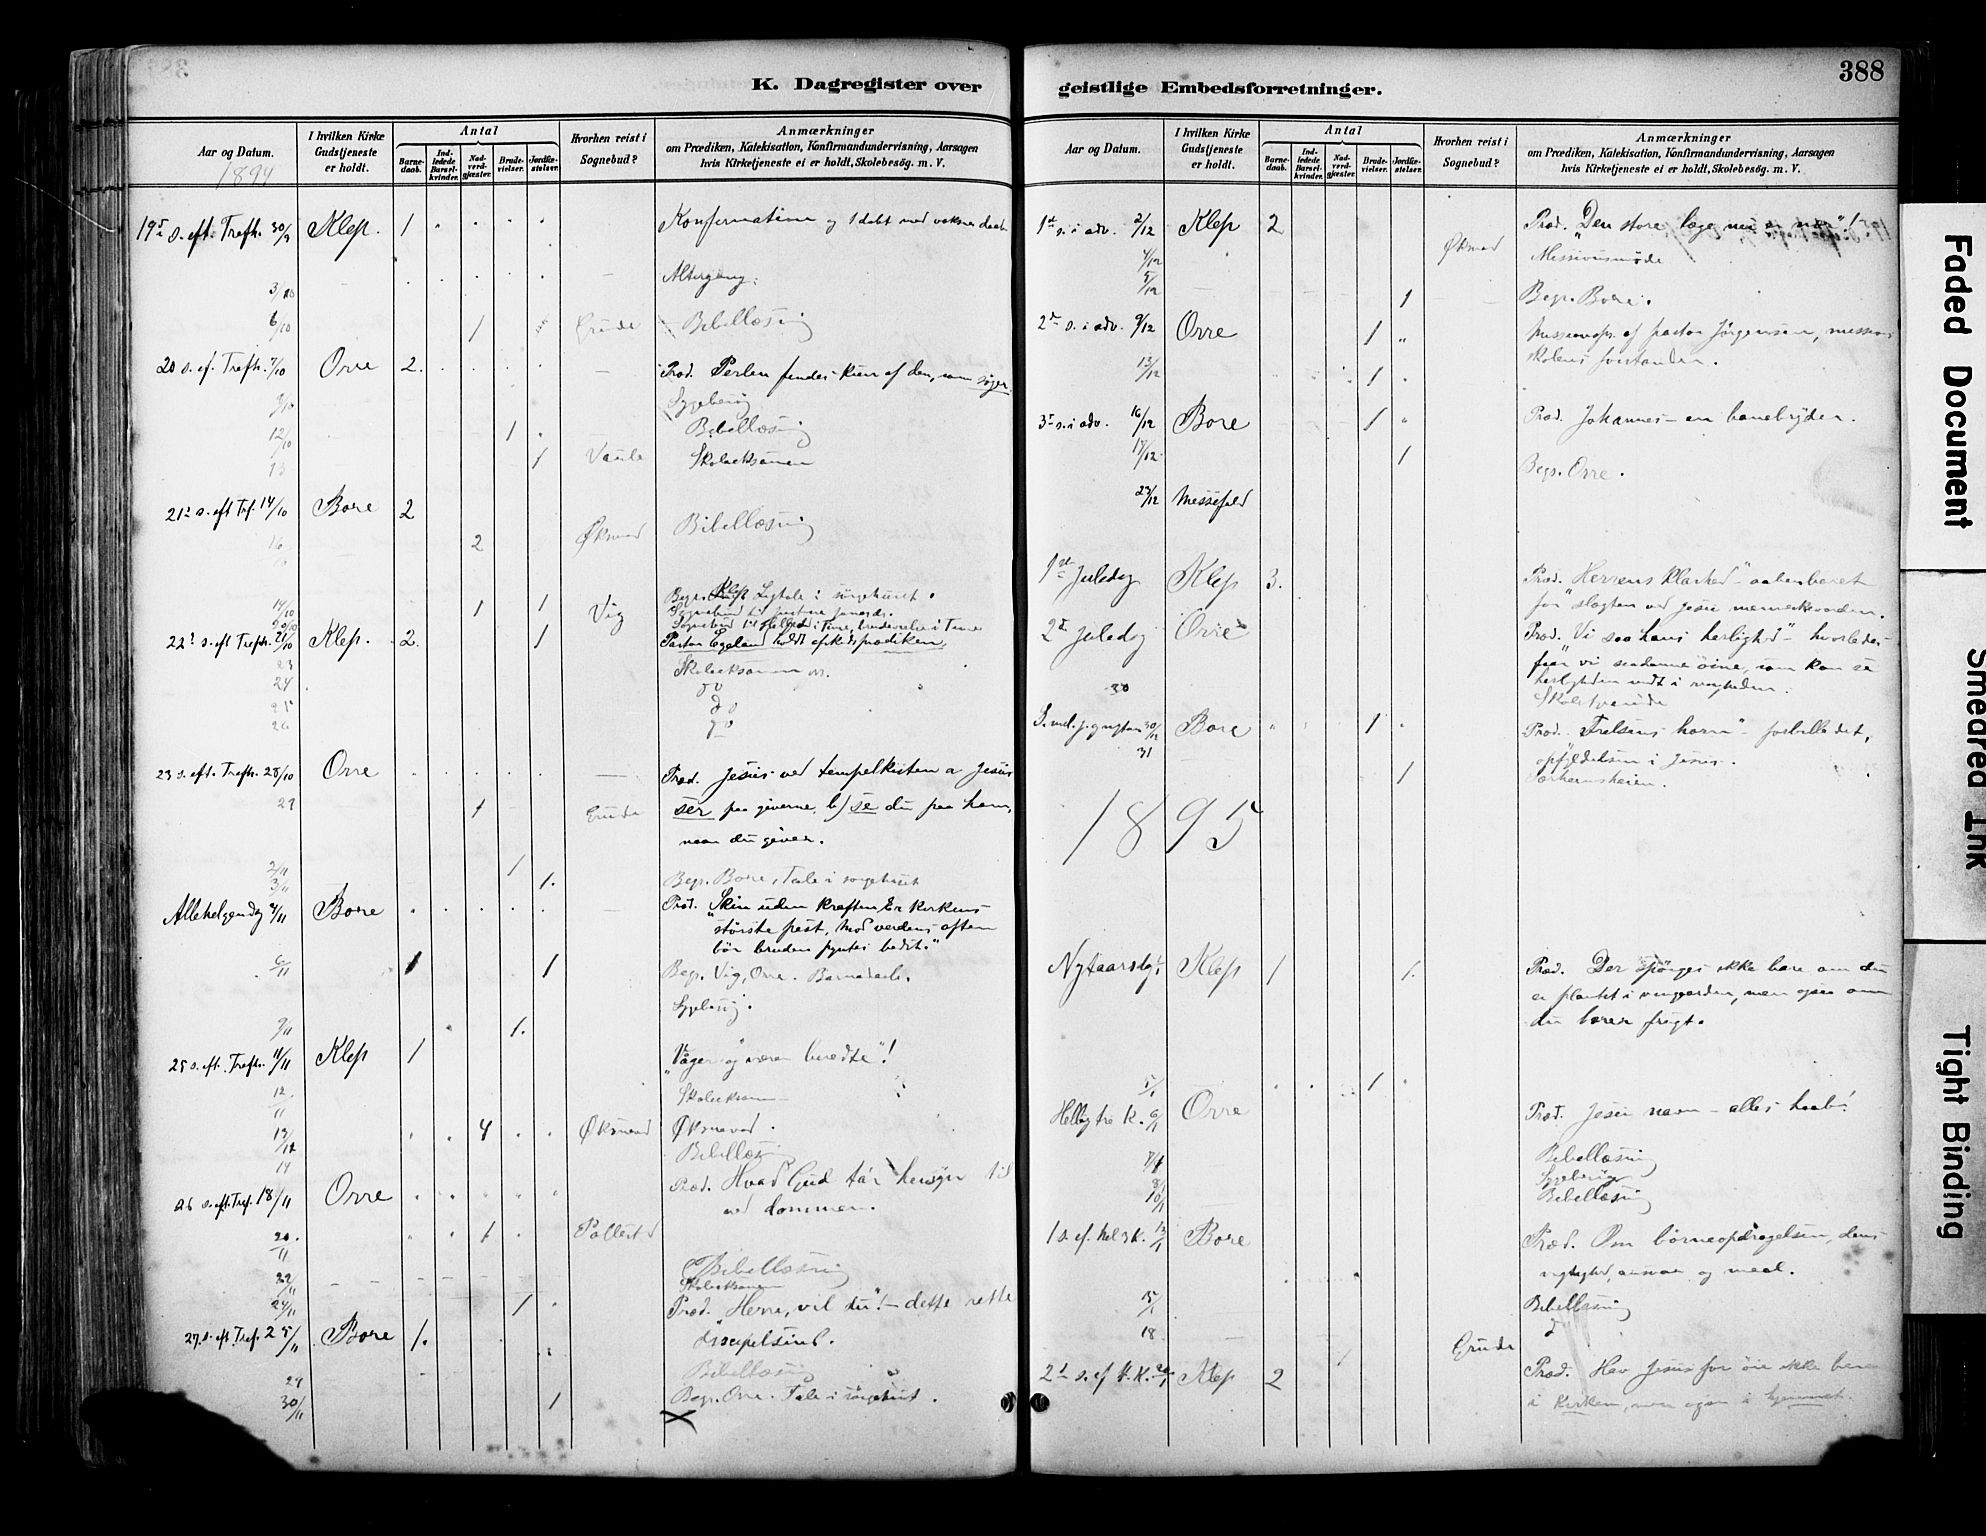 K. Dagregister over
Aar og Datum.
I hvilken Kirke Gudstjeneste er holdt.
Antal
Barne-daab.
Ind-ledede Barsel-kvinder.
Nad-verd-gjæster.
Brude-vielser.
Jordfæ-stelser.
Hvorhen reist i Sognebud?
Anmærkninger
om Prædiken, Katekisation, Konfirmandundervisning, Aarsagen
hvis Kirketjeneste ei er holdt, Skolebesög. m. V.
1894
S. eft. Trefh. 30/9 Klep. 1 Konfirmation og 1 dobt med voksen daab
3/10 Altergang.
6/10 1 Grude Bibellæsning
20 s. ef. Trefh. 7/10 Orre 2. Præd. Perlen findes kun af den, som søger
9/10 Sygebesøg
12/10 1 Bibellæsning
13 1 Vaule Skoleeksamen
21 s. eft Tref. 14/10 Bore 2
16 2 Øksnevad Bibellæsning
19/10 1 1 Vig Begr. Klep Ligtale i sørgehuset.
22 s. eft Trefh. 21/10 Klep. 2. 1 Pastor Egeland holdt afskedsprædiken
23 Skoleeksamen
24 do
25 do
26 do
23 s. eft. Trefh. 28/10 Orre Præd. Jesus ved tempelkisten a Jesus
29 1 Grude ser paa giverne, b) se du paa ham,
naar du giver.
2/11 1
3/11 1. Begr. Bore, Tale i sørgehuset
Allehelgendag 4/11 Bore Præd. Skin uden kraften Er kirkens
største fest, Mod verdens aften
bør bruden pyntes bedst."
6/11 1 1 Begr. Vig, Orre. Barnedaab.
Sygebesøg.
9/11 1.
25 s. eft. Trefh. 11/11 Klep 1 "Våger og være beredte"!
12/11 Skoleeksamen
13/11 4 Øksnevad Øksnevad.
14 Bibellæsning
26 s. eft. Tref. 18/11 Orre Præd. Hvad Gud tar hensyn til
ved dommen.
20/11 1 Pollestad
Bibellæsning
22/11 Skoleeksamen
24/11 1 Præd. Herre, vil du"! - dette rette
27. s. eft Tref. 25/11 Bore 1. discipelsind.
29 Bibellæsning
30/11 1 Begr. Orre. Tale i sørgehuset.
geistlige Embedsforretninger.
388
Aar og Datum.
I hvilken Kirke Gudstjeneste er holdt.
Antal
Barne-daab.
Ind-ledede Barsel-kvinder.
Nad-verd-gjæster.
Brude-vielser.
Jordfæ-stelser.
Hvorhen reist i Sognebud?
Anmærkninger
om Prædiken, Katekisation, Konfirmandundervisning, Aarsagen
hvis Kirketjeneste ei er holdt, Skolebesög. m. V.
1st s. i adv. 2/12 Klep 2 Præd. "Den store læge nu er nær"!
4/12 Øksnevad Missionsmøde
5/12 1 Begr. Bore.
2 s. i adv. 9/12 Orre 1 af pastor Jørgensen, missions
skolens forstander.
13/12 1
3 s. i adv. 16/12 Bore 1 Præd. Johannes - en banebryder.
17/12 1 Begr. Orre.
23/12 Messefald
1st Juledag Klep 3. Præd. "Herrens klarhed" - aabenbaret
for slægten ved Jesu menneskevorden.
2 Juledag Orre Præd. "Vi saa hans herlighed" - hvorledes
faar vi saadanne öine, som kan se
herligheden midt i ringheden.
30
S. mel. j. og nytaar 30/12 Bore 1 Præd. "Frelsens horn" - forbilledet,
opfyldelsen i Jesus.
31 1
1895
Nytaarsdag 1/1 Klep 1 1. Præd. Der spörges ikke bare om du
er plantet i vingaarden, men ogsaa om
du bærer frugt.
5/1 1
Hellig tre K. 6/1 Orre Præd. Jesu navn - alles haab!
7/1 Bibellæsning
8/1 Sygebesøg
10/1 Bibellæsning
1 s. ef. hel 3 K. 13/1 Bore Præd. Om börneopdragelsen, dens
vigtighed, ansvar og maal.
15/1 Bibellæsning
18. Grude
2 s. ef H. K. 20/1 Klep 2 Præd. Hav Jesus for öie ikke bare
i kirken, men ogsaa i hjemmet.
Faded Document
Smeared Ink
Tight Binding